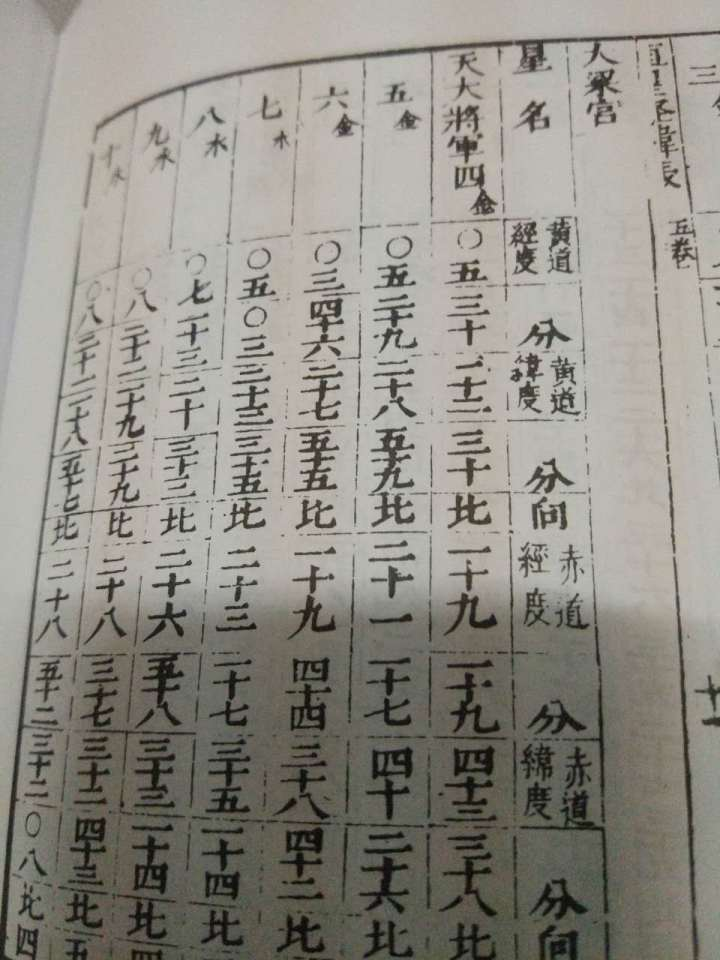 三
星經緯表 五卷
大梁宮
星名 黃道經度 分 黃道緯度 分向 赤道經度 分 赤道緯度 分向
天大將軍四 金 〇五 三十 三十二 三十 北 一十九 一十九 四十三 三十八 北
五 金 〇五 二十九 二十八 五十九 北 二十一 一十七 四十 二十六 北
六 金 〇三 四十六 二十七 五十五 北 一十九 四十四 三十八 四十二 北
七 水 〇五 〇三 二十三 三十五 北 二十三 一十七 三十五 一十四 北
八 水 〇七 一十三 二十 三十三 北 二十六 五十八 三十三 一十四 北
九 水 〇八 三十二 一十九 三十九 北 二十八 三十七 三十二 四十三 北
十 水 〇八 三十二 一十八 五十七 北 二十八 五十二 三十二 〇八 北 四